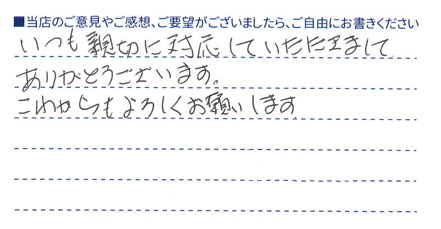 ■当店のご意見やご感想、ご要望がございましたら、ご自由にお書きください
いつも親切に対応していただきまして
ありがとうございます。
これからもよろしくお願いします